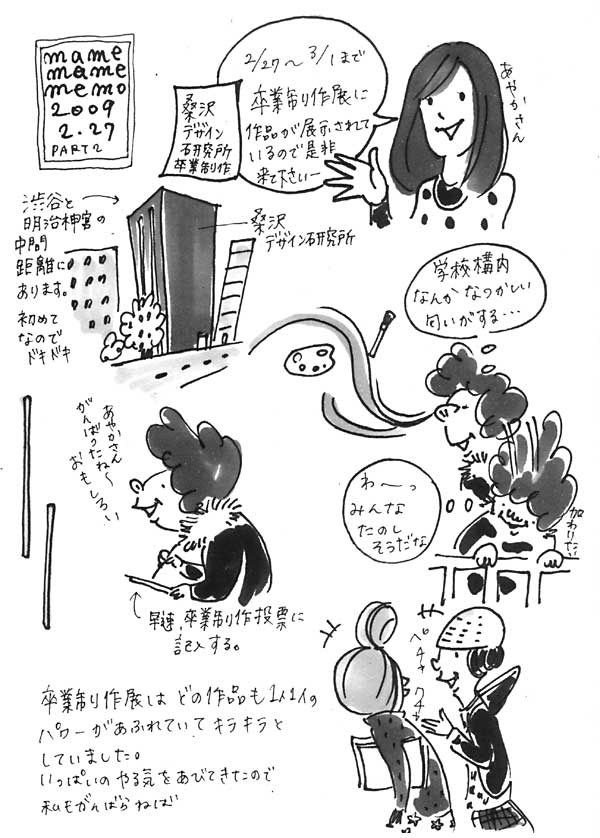 mame
mame
memo
2009
2.27
PART 2
2/27〜3/1まで
卒業制作展に
作品が展示されて
いるので是非
来て下さいー
あやかさん
桑沢
デザイン
研究所
卒業制作
渋谷と
明治神宮の
中間
距離に
あります。
初めて
なので
ドキドキ
桑沢
デザイン研究所
学校構内
なんかなつかしい
匂いがする…
あやかさん
がんばったね〜
おもしろい
わ〜っ
みんな
たのし
そうだな
加わりたい
早速、卒業制作投票に
記入する。
ペチャ
クチャ
卒業制作展は どの作品も1人1人の
パワーがあふれていて キラキラと
していました。
いっぱいの やる気をあびてきたので
私もがんばらねば